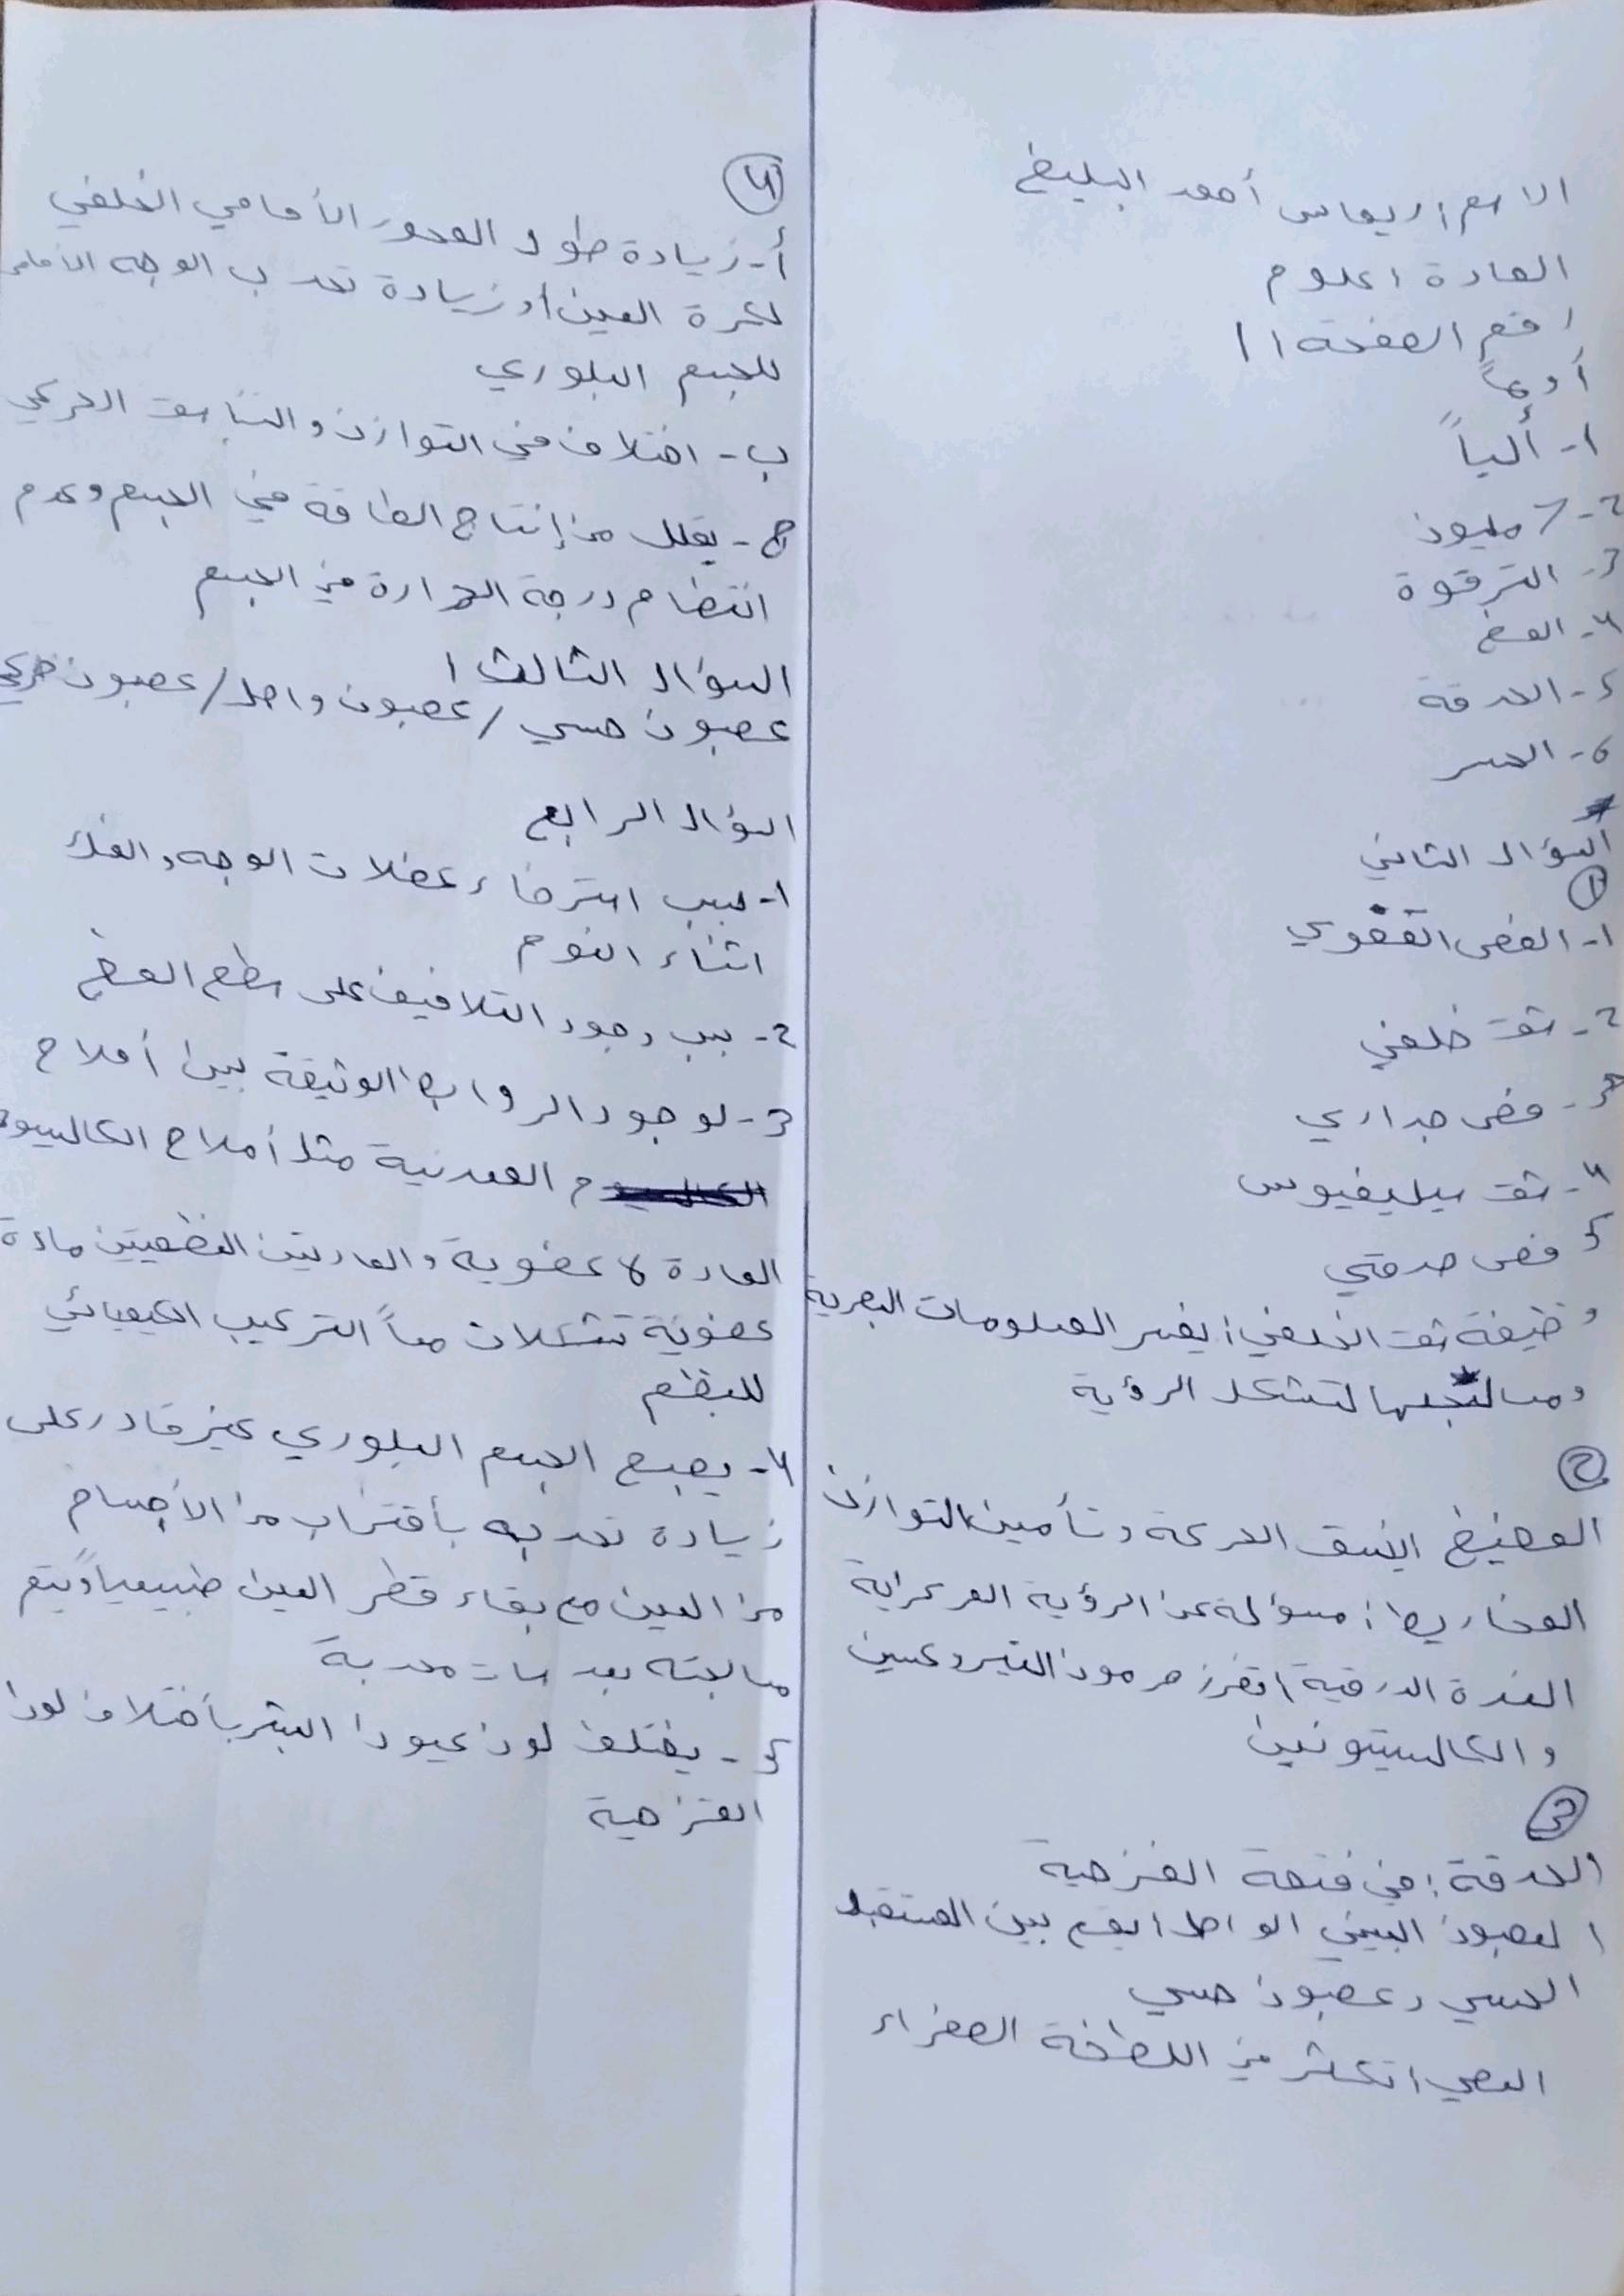 الاسم: ريماس أحمد البليخ
المادة: علوم
رقم الصفحة: 1
أولاً
1- ألياً
2- 7 مليون
3- الترقوة
4- المخ
5- الحدقة
6- الحسر
السؤال الثاني
①
1- الفص القفوي
2- شق خلفي
3- فص جداري
4- شق سيلفيوس
5 فص صدغي
وظيفة شق الخلفي: يفسر المعلومات البصرية
ومعالجتها لتشكل الرؤية
②
المخيخ: ينسق الحركة وتأمين التوازن
المخاريط: مسؤلة عن الرؤية المركزية
الغدة الدرقية: تفرز هرمون التيروكسين
والكالسيتونين
③
الحدقة: في فتحة القزحية
العصبون البيني الواصل: يقع بين المستقبل
الحسي وعصبون حسي
العصي: تكثر في اللطخة الصفراء
④
أ- زيادة طول المحور الأمامي الخلفي
لكرة العين/أو زيادة تحدب الوجه الأمامي
للجسم البلوري
ب- اختلاف في التوازن والتناسق الحركي
ج- يقلل من إنتاج الطاقة في الجسم وعدم
انتظام درجة الحرارة في الجسم
السؤال الثالث:
عصبون حسي / عصبون واصل/عصبون حركي
السؤال الرابع
1- لسبب استرخاء عضلات الوجه والفك
اثناء النوم
2- بسبب وجود التلافيف على سطح المخ
3- لوجود الروابط الوثيقة بين أملاح
المعدنية مثل أملاح الكالسيوم
المادة لا عضوية والمادتين العظميتين مادة
عضوية تشكلان معاً التركيب الكيميائي
للعظم
4- يصبح الجسم البلوري غير قادر على
زيادة تحدبه بأقتراب من الأجسام
من العين مع بقاء قطر العين طبيعياً ويتم
معالجته بعدسات محدبة
5- يختلف لون عيون البشر بأختلاف لون
القزحية